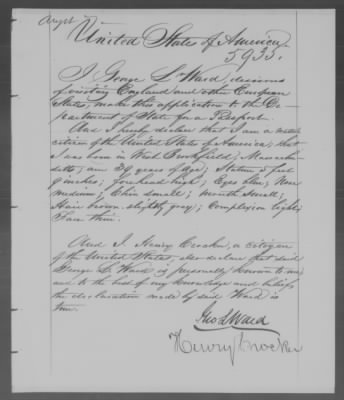 Augst
United States of America
5935.
I George L. Ward, desirous
of visiting England and other European
States, make this application to the De-
partment of State for a Passport.
And I hereby declare that I am a native
citizen of the United States of America, that
I was born in West Brookfield, Massachu-
setts, am years of Age; Stature 5 feet
inches; forehead high; Eyes blue; Nose
medium; Chin small; mouth small;
Hair brown slightly gray; Complexion light;
Face thin.
And I, Henry Crocker, a citizen
of the United States, also declare that said
George L. Ward is personally known to me,
and to the best of my knowledge and belief
the declaration made by said Ward is
true.
Geo L Ward
Henry Crocker